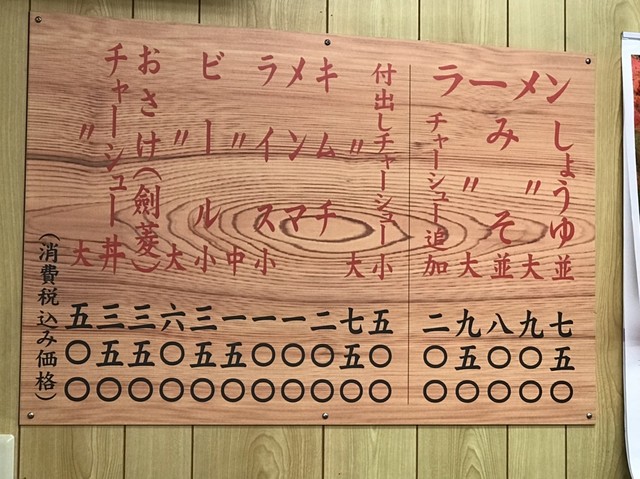 ラーメン
しょうゆ並 七五〇
〃大 九〇〇
みそ並 八〇〇
〃大 九五〇
チャーシュー追加 二〇〇
付出しチャーシュー小 五〇〇
〃大 七五〇
キムチ 二〇〇
メンマ 一〇〇
ライス小 一〇〇
〃中 一五〇
ビール小 三五〇
〃大 六〇〇
おさけ(劍菱) 三五〇
チャーシュー丼 三五〇
〃大 五〇〇
(消費税込み価格)